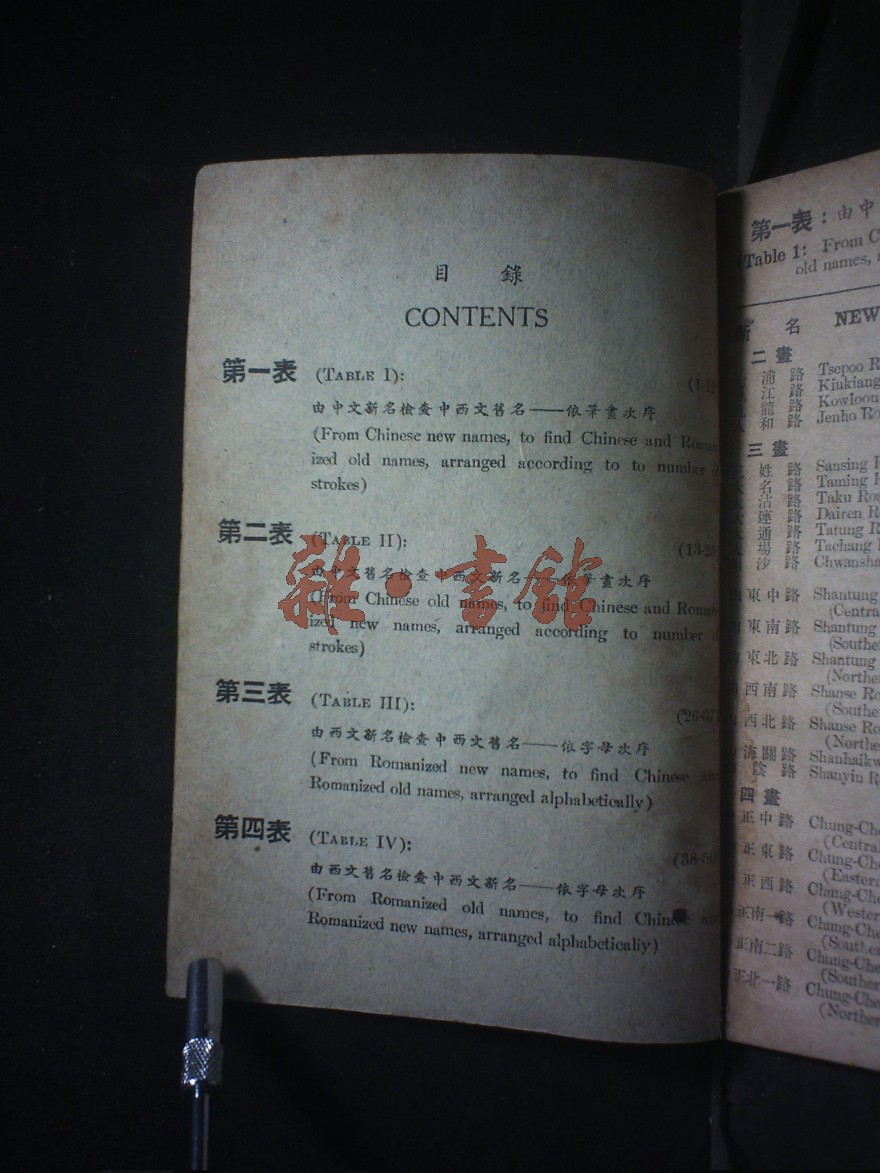 目 錄
CONTENTS
第一表 (TABLE I):
(1-12
由中文新名檢查中西文舊名——依筆畫次序
(From Chinese new names, to find Chinese and Roman-
ized old names, arranged according to to number
strokes)
第二表 (TABLE II):
(13-25
由中文舊名檢查中西文新名——依筆畫次序
(From Chinese old names, to find Chinese and Roman-
ized new names, arranged according to number
strokes)
第三表 (TABLE III):
由西文新名檢查中西文舊名——依字母次序
(From Romanized new names, to find Chinese and
Romanized old names, arranged alphabetically)
第四表 (TABLE IV):
(38-50
由西文舊名檢查中西文新名——依字母次序
(From Romanized old names, to find Chinese and
Romanized new names, arranged alphabetically)
雜·書館
第一表：由中
Table 1: From C
old names, a
新 名 NEW
二畫
浦 路 Tsepoo R
江 路 Kiukiang
龍 路 Kowloon
和 路 Jenho Ro
三畫
姓 路 Sansing R
名 路 Taming R
沽 路 Taku Roa
連 路 Dairen R
通 路 Tatung R
場 路 Tachang
沙 路 Chwansha
東中路 Shantung
(Centra
東南路 Shantung
(Southe
東北路 Shantung
(Norther
西南路 Shanse Ro
(Southe
西北路 Shanse Ro
(Northe
海關路 Shanhaikw
陰 路 Shanyin R
四畫
正中路 Chung-Che
(Central
正東路 Chung-Che
(Eastern
正西路 Chung-Che
(Western
正南一路 Chung-Che
(Southern
正南二路 Chung-Che
(Southern
正北一路 Chung-Che
(Northern